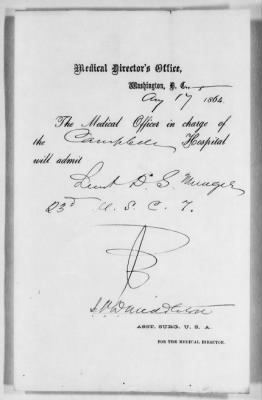 Medical Director's Office,
Washington, D. C.
Aug 17 1864.
The Medical Officer in charge of
the Campbell Hospital
will admit
Lieut D. G.
23d U. S. C. T.
ASST. SURG. U. S. A.
FOR THE MEDICAL DIRECTOR.